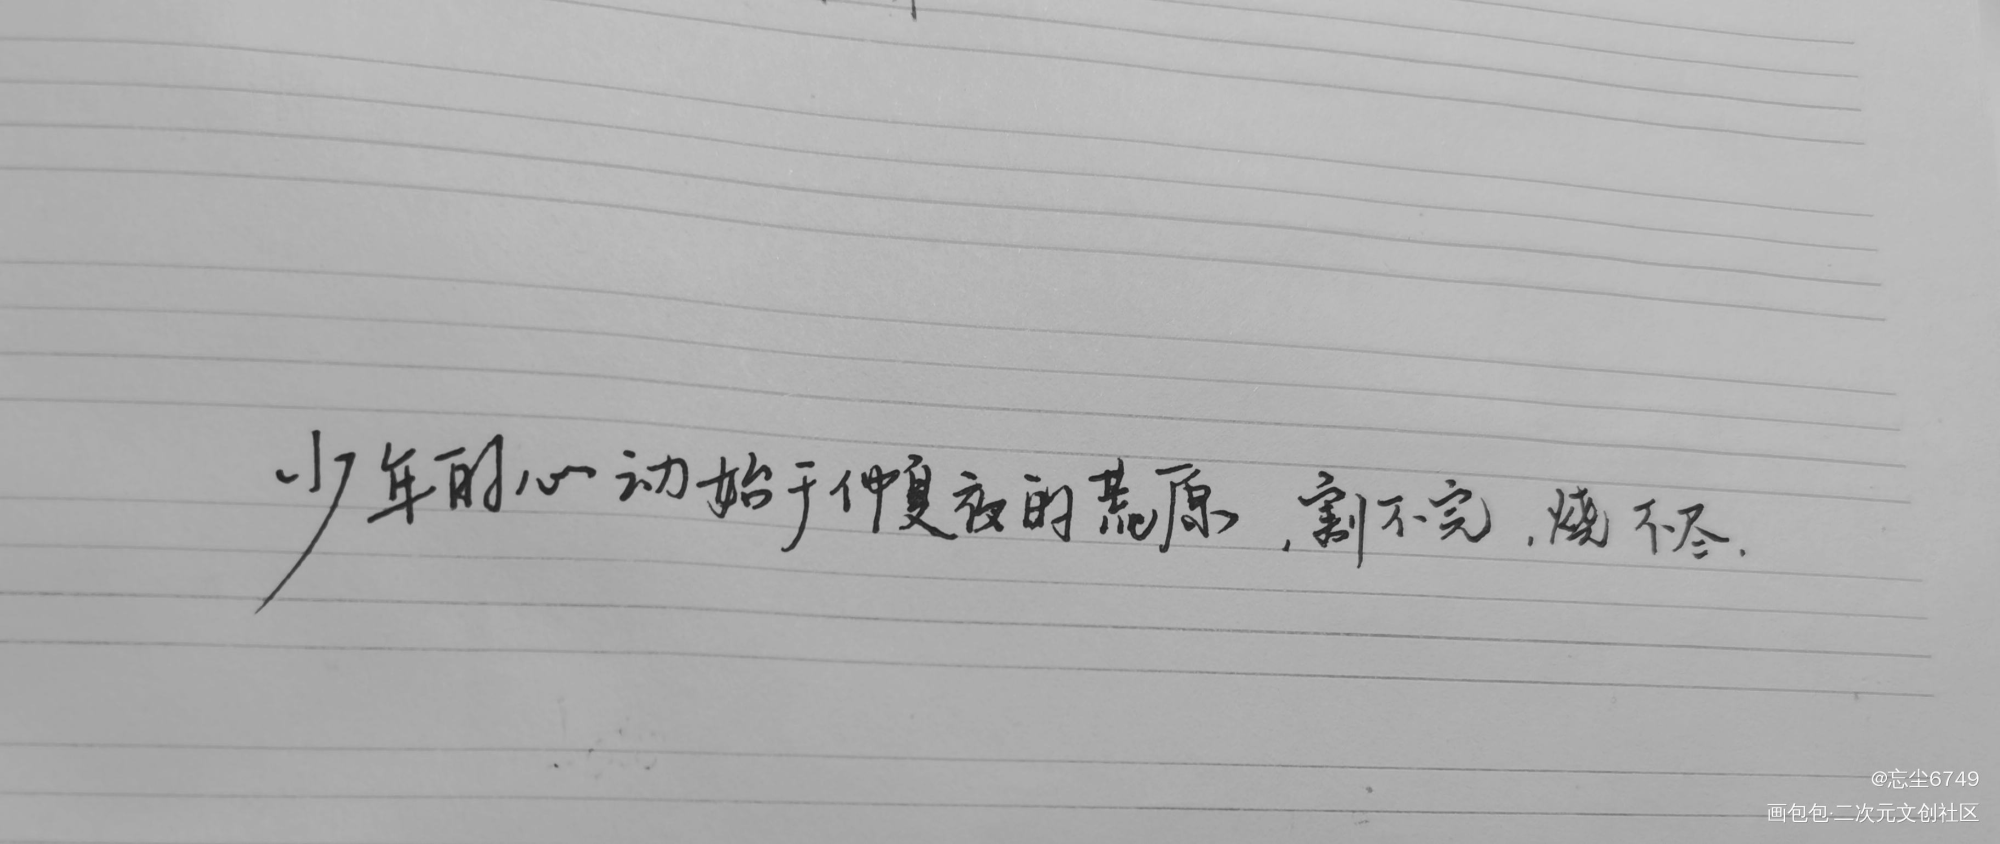 少年的心动始于仲夏夜的荒原,割不完,烧不尽.
@忘尘6749
画包包·二次元文创社区